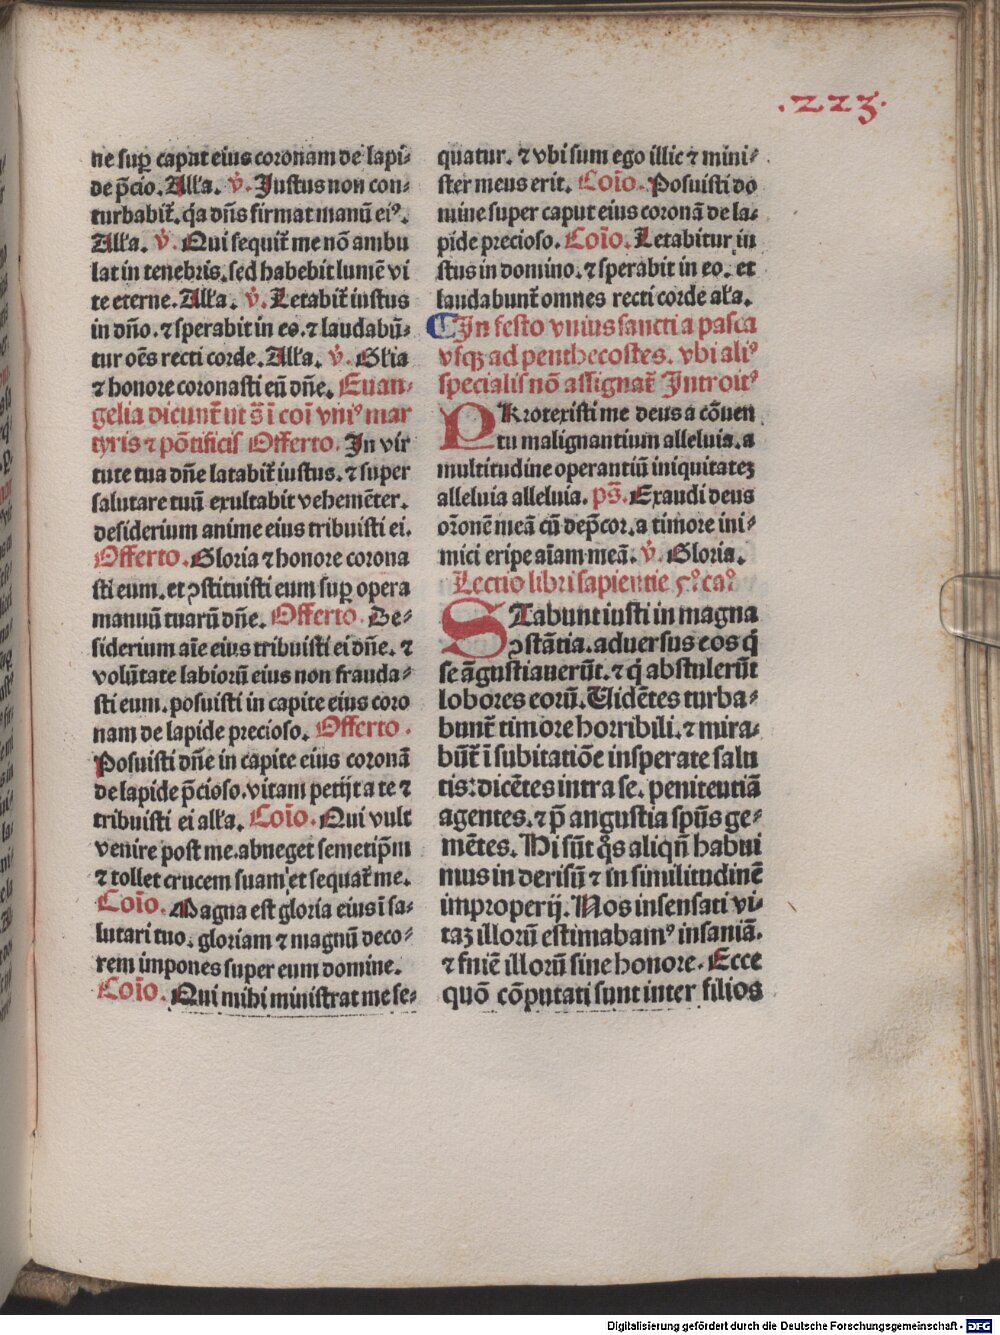 .223.
ne sup̲ caput eius coronam de lapi⸗
de p̄cio. Alľa. v̓. Justus non con⸗
turbabit᷑. q̇a dn̄s firmat manū eiꝰ.
Alľa. v̓. Qui sequit᷑ me nō ambu
lat in tenebris. sed habebit lumē vi
te eterne. Alľa. v̓. Letabit᷑ iustus
in dn̄o. ⁊ sperabit in eo. ⁊ laudabū⸗
tur oēs recti corde. Alľa. v̓. Glīa
⁊ honore coronasti eū dn̄e. Euan⸗
gelia dicunt᷑ ut s̄ ī coī vniꝰ mar
tyris ⁊ pōtificis Offerto. In vir
tute tua dn̄e latabit᷑ iustus. ⁊ super
salutare tuū exultabit vehemēter.
desiderium anime eius tribuisti ei.
Offerto. Gloria ⁊ honore corona
sti eum. et ꝯstituisti eum sup̲ opera
manuū tuarū dn̄e. Offerto. De⸗
siderium aīe eius tribuisti ei dn̄e. ⁊
volūtate labiorū eius non frauda⸗
sti eum. posuisti in capite eius coro
nam de lapide precioso. Offerto.
Posuisti dn̄e in capite eius coronā
de lapide p̄cioso. vitam petijt a te ⁊
tribuisti ei alľa. Coīo. Qui vult
venire post me. abneget semetip̄m
⁊ tollet crucem suam et sequat᷑ me.
Coīo. Magna est gloria eius ī sa⸗
lutari tuo. gloriam ⁊ magnū deco⸗
rem impones super eum domine.
Coīo. Qui mihi ministrat me se⸗
quatur. ⁊ vbi sum ego illic ⁊ mini⸗
ster meus erit. Coīo. Posuisti do
mine super caput eius coronā de la⸗
pide precioso. Coīo. Letabitur iu
stus in domino. ⁊ sperabit in eo. et
laudabunt᷑ omnes recti corde aľa.
In festo vnius sancti a pasca
vsqꝫ ad penthecostes. vbi aliꝰ
specialis nō assignat᷑ Introitꝰ
PRrotexisti me deus a cōuen
tu malignantium alleluia. a
multitudine operantiū iniquitateꝫ
alleluia alleluia. ps̄. Exaudi deus
or̄onē meā cū dep̄cor. a timore ini⸗
mici eripe aīam meā. v̓. Gloria.
Lectio libri sapientie 5ꝰ. caꝰ
STabunt iusti in magna
ꝯstātia. aduersus eos q̇
se āgustiauerūt. ⁊ q̇ abstulerūt
lobores eorū. Uidētes turba⸗
bunt᷑ timore horribili. ⁊ mira⸗
būt᷑ ī subitatiōe insperate salu
tis: dicētes intra se. penitentiā
agentes. ⁊ p̄ angustia sp̄us ge⸗
mētes. Hi sūt q̊s aliqn̄ habui
mus in derisū ⁊ in similitudinē
improperij. Nos insensati vi⸗
taꝫ illorū estimabamꝰ insaniā.
⁊ fniē illorū sine honore. Ecce
quō cōputati sunt inter filios
Digitalisierung gefördert durch die Deutsche Forschungsgemeinschaft - DFG